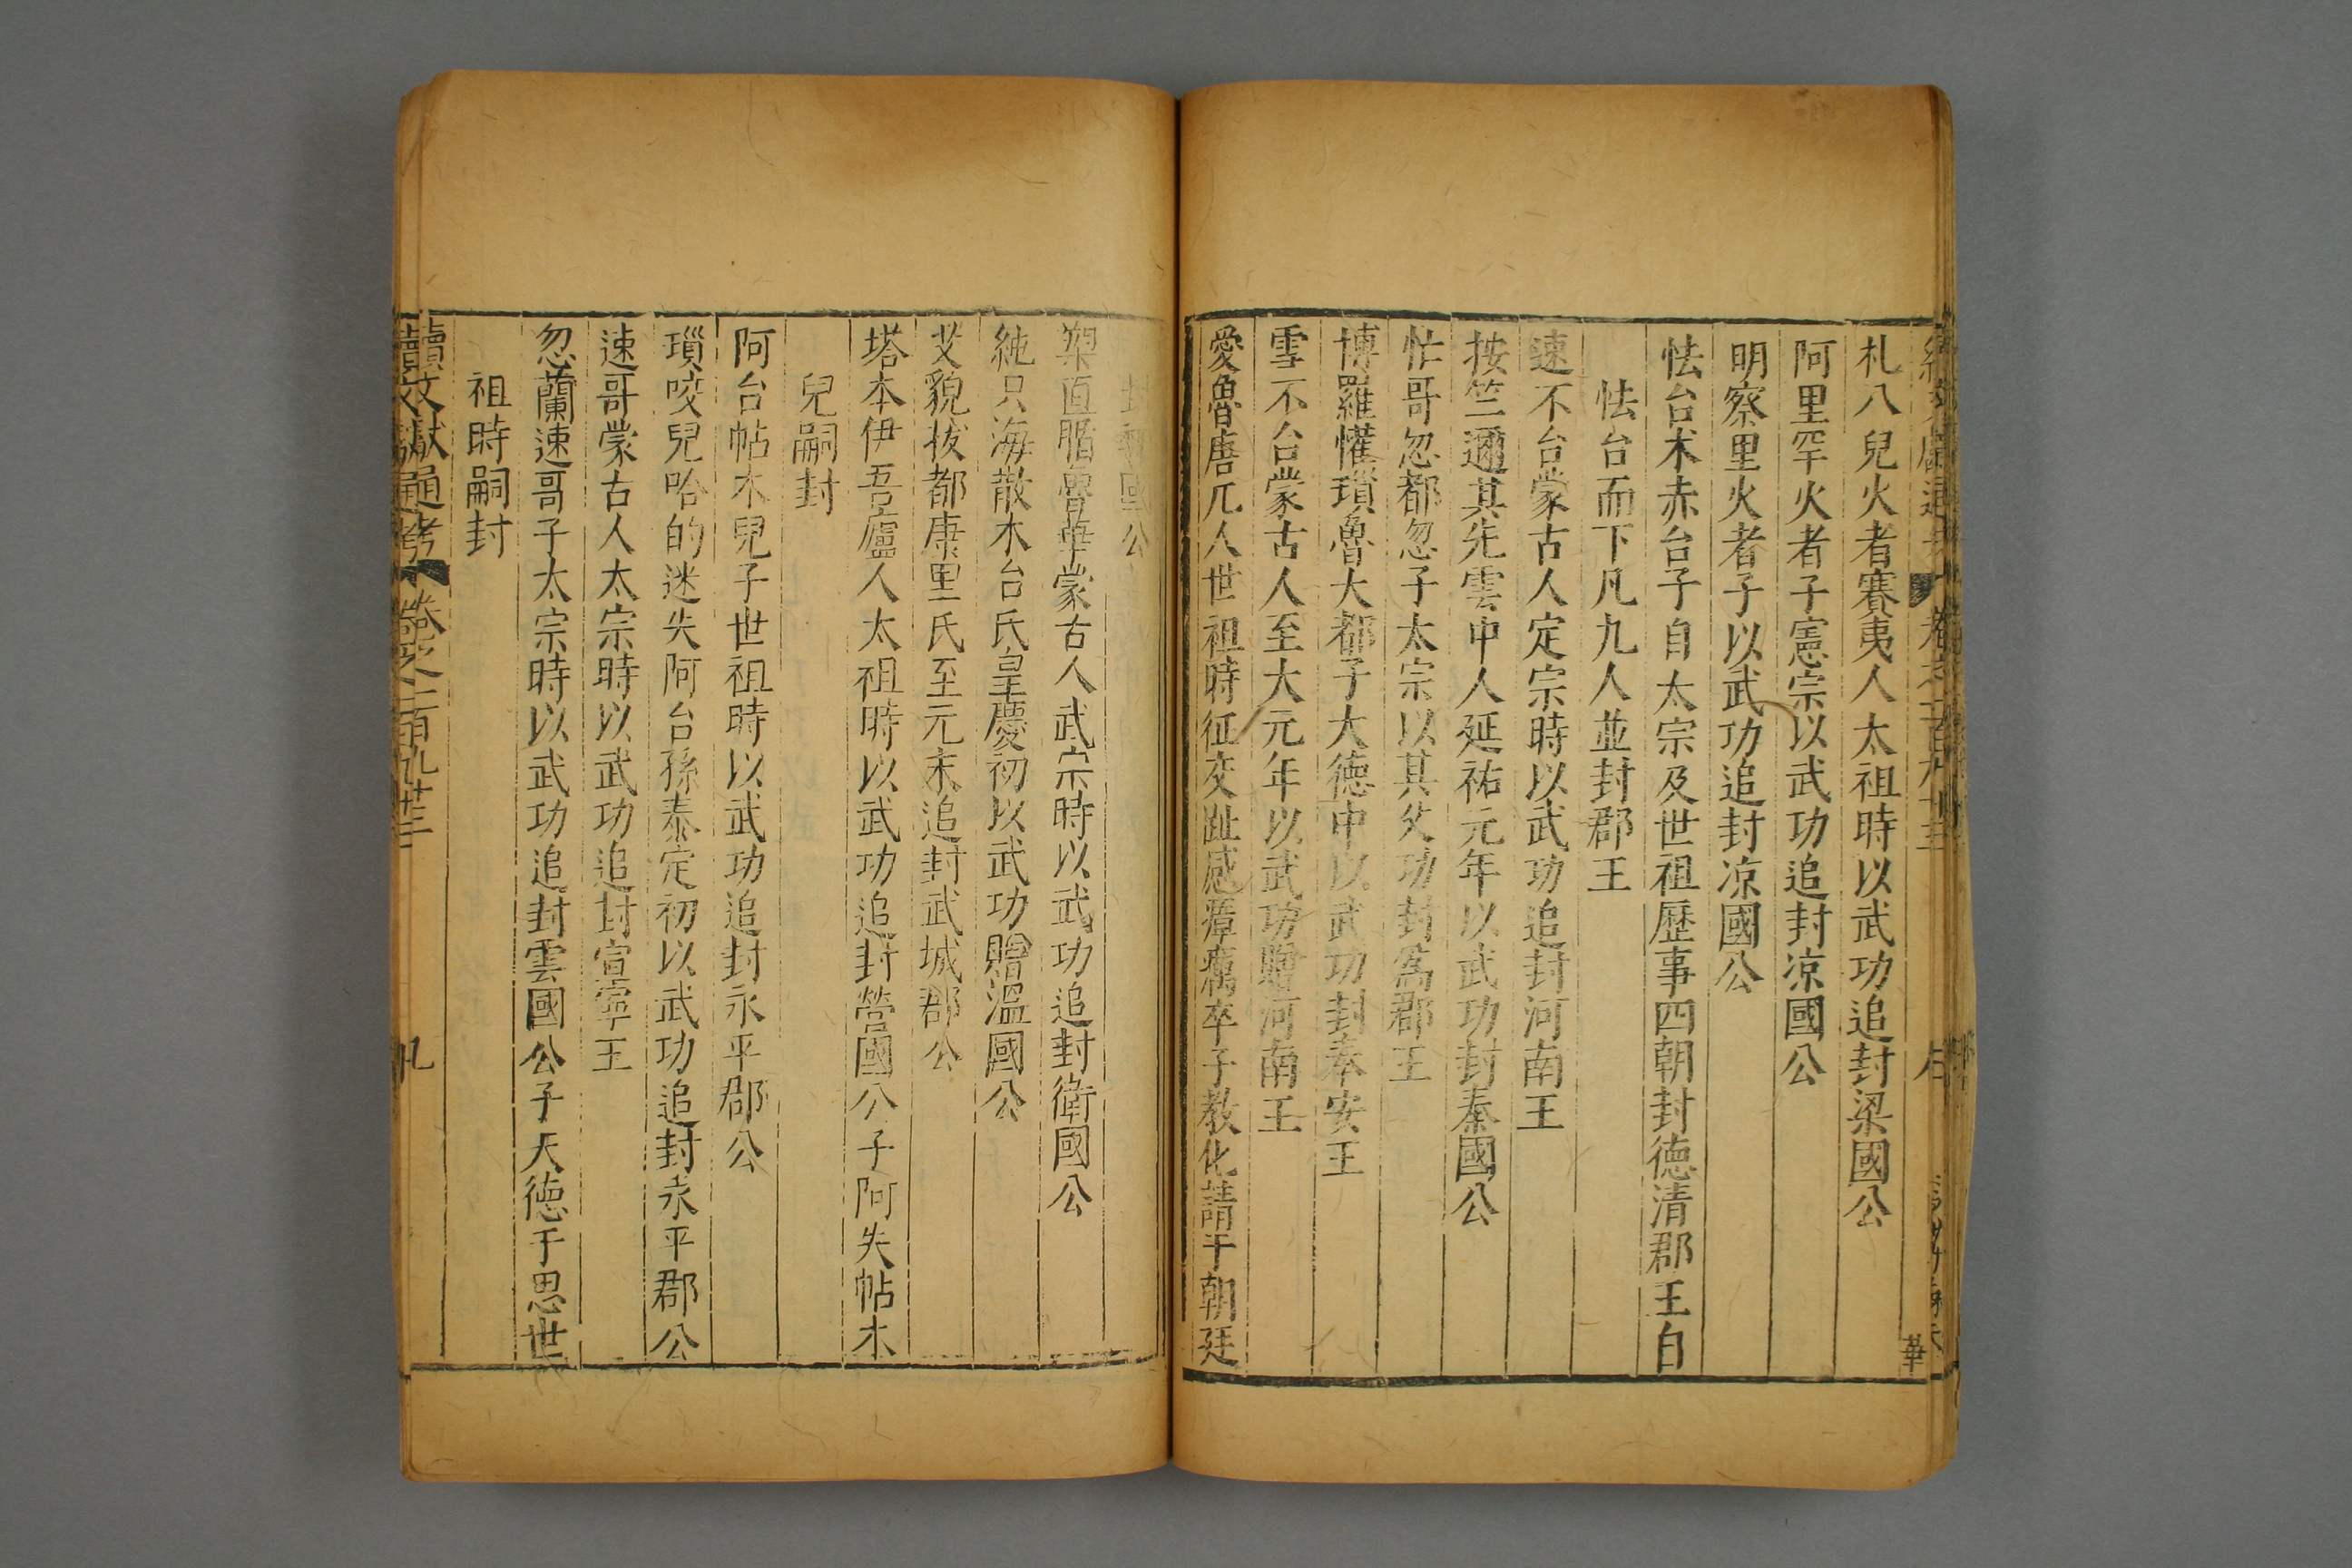 札八兒火者賽夷人太祖時以武功追封梁國公
阿里罕火者子憲宗以武功追封凉國公
明察里火者子以武功追封凉國公
怯台术赤台子自太宗及世祖歷事四朝封德清郡王自
怯台而下凡九人並封郡王
速不台蒙古人定宗時以武功追封河南王
按竺邇其先雲中人延祐元年以武功封秦國公
忙哥忽都忽子太宗以其父功封爲郡王
博羅懽瑣魯大都子大德中以武功封奉安王
雪不台蒙古人至大元年以武功贈河南王
愛魯唐兀人世祖時征交趾感瘴癘卒子教化請于朝廷
封 國公
架直腯魯華蒙古人武宗時以武功追封衛國公
純只海散木台氏皇慶初以武功贈溫國公
艾貌拔都康里氏至元末追封武城郡公
塔本伊吾廬人太祖時以武功追封營國公子阿失帖木
兒嗣封
阿台帖木兒子世祖時以武功追封永平郡公
瑣咬兒哈的迷失阿台孫泰定初以武功追封永平郡公
速哥蒙古人太宗時以武功追封宣寧王
忽蘭速哥子太宗時以武功追封雲國公子天德于思世
祖時嗣封
續文獻通考 卷之二百九十三 九